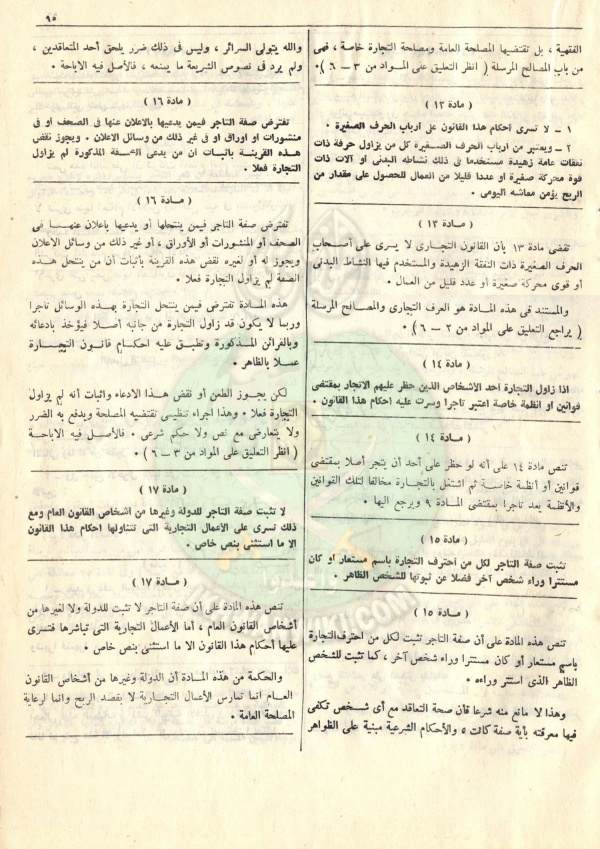 ٩٥
الفقهية ، بل تقتضيها المصلحة العامة ومصلحة التجارة خاصة ، فهى
من باب المصالح المرسلة ( انظر التعليق على المواد من ٣ – ٦ ) .
( مادة ١٣ )
١ – لا تسرى أحكام هذا القانون على أرباب الحرف الصغيرة .
٢ – ويعتبر من ارباب الحرف الصغيرة كل من يزاول حرفة ذات
نفقات عامة زهيدة مستخدما فى ذلك نشاطه البدنى او آلات ذات
قوة محركة صغيرة او عددا قليلا من العمال للحصول على مقدار من
الربح يؤمن معاشه اليومى .
( مادة ١٣ )
تقضى مادة ١٣ بأن القانون التجارى لا يسرى على أصحاب
الحرف الصغيرة ذات النفقة الزهيدة والمستخدم فيها النشاط البدنى
أو قوى محركة صغيرة أو عدد قليل من العمال .
والمستند فى هذه المادة هو العرف التجارى والمصالح المرسلة
( يراجع التعليق على المواد من ٢ – ٦ ) .
( مادة ١٤ )
اذا زاول التجارة احد الأشخاص الذين حظر عليهم الاتجار بمقتضى
قوانين او انظمة خاصة اعتبر تاجرا وسرت عليه احكام هذا القانون .
( مادة ١٤ )
تنص مادة ١٤ على أنه لو حظر على أحد أن يتجر أصلا بمقتضى
قوانين أو أنظمة خاصة ثم اشتغل بالتجارة مخالفا لتلك القوانين
والأنظمة يعد تاجرا بمقتضى المادة ٩ ويرجع اليها .
( مادة ١٥ )
تثبت صفة التاجر لكل من احترف التجارة باسم مستعار او كان
مستترا وراء شخص آخر فضلا عن ثبوتها للشخص الظاهر .
( مادة ١٥ )
تنص هذه المادة على أن صفة التاجر تثبت لكل من احترف التجارة
باسم مستعار أو كان مستترا وراء شخص آخر ، كما تثبت للشخص
الظاهر الذى استتر وراءه .
وهذا لا مانع منه شرعا فأن صحة التعاقد مع أى شخص تكفى
فيها معرفته بأية صفة كانت ، والأحكام الشرعية مبنية على الظواهر
والله يتولى السرائر ، وليس فى ذلك ضرر يلحق أحد المتعاقدين ،
ولم يرد فى نصوص الشريعة ما يمنعه ، فالأصل فيه الاباحة .
( مادة ١٦ )
تفترض صفة التاجر فيمن يدعيها بالاعلان عنها فى الصحف او فى
منشورات او اوراق او فى غير ذلك من وسائل الاعلان . ويجوز نقض
هذه القرينة باثبات ان من يدعى الصفة المذكورة لم يزاول
التجارة فعلا .
( مادة ١٦ )
تفترض صفة التاجر فيمن ينتحلها أو يدعيها باعلان عنها فى
الصحف أو المنشورات أو الأوراق ، أو غير ذلك من وسائل الاعلان
ويجوز له أو لغيره نقض هذه القرينة بأثبات أن من ينتحل هذه
الصفة لم يزاول التجارة فعلا .
هذه المادة تفترض فيمن ينتحل التجارة بهذه الوسائل تاجرا
وربما لا يكون قد زاول التجارة من جانبه أصلا فيؤخذ بادعائه
وبالقرائن المذكورة وتطبق عليه احكام قانون التجارة
عملا بالظاهر .
لكن يجوز الطعن أو نقض هذا الادعاء واثبات أنه لم يزاول
التجارة فعلا . وهذا اجراء تنظيمى تقتضيه المصلحة ويدفع به الضرر
ولا يتعارض مع نص ولا حكم شرعى . فالأصل فيه الاباحة
( انظر التعليق على المواد من ٣ – ٦ ) .
( مادة ١٧ )
لا تثبت صفة التاجر للدولة وغيرها من أشخاص القانون العام ومع
ذلك تسرى على الأعمال التجارية التى تتناولها احكام هذا القانون
الا ما استثنى بنص خاص .
( مادة ١٧ )
تنص هذه المادة على أن صفة التاجر لا تثبت للدولة ولا لغيرها من
أشخاص القانون العام ، أما الأعمال التجارية التى تباشرها فتسرى
عليها أحكام هذا القانون الا ما استثنى بنص خاص .
والحكمة من هذه المادة أن الدولة وغيرها من أشخاص القانون
العام انما تمارس الأعمال التجارية لا بقصد الربح وانما لرعاية
المصلحة العامة .